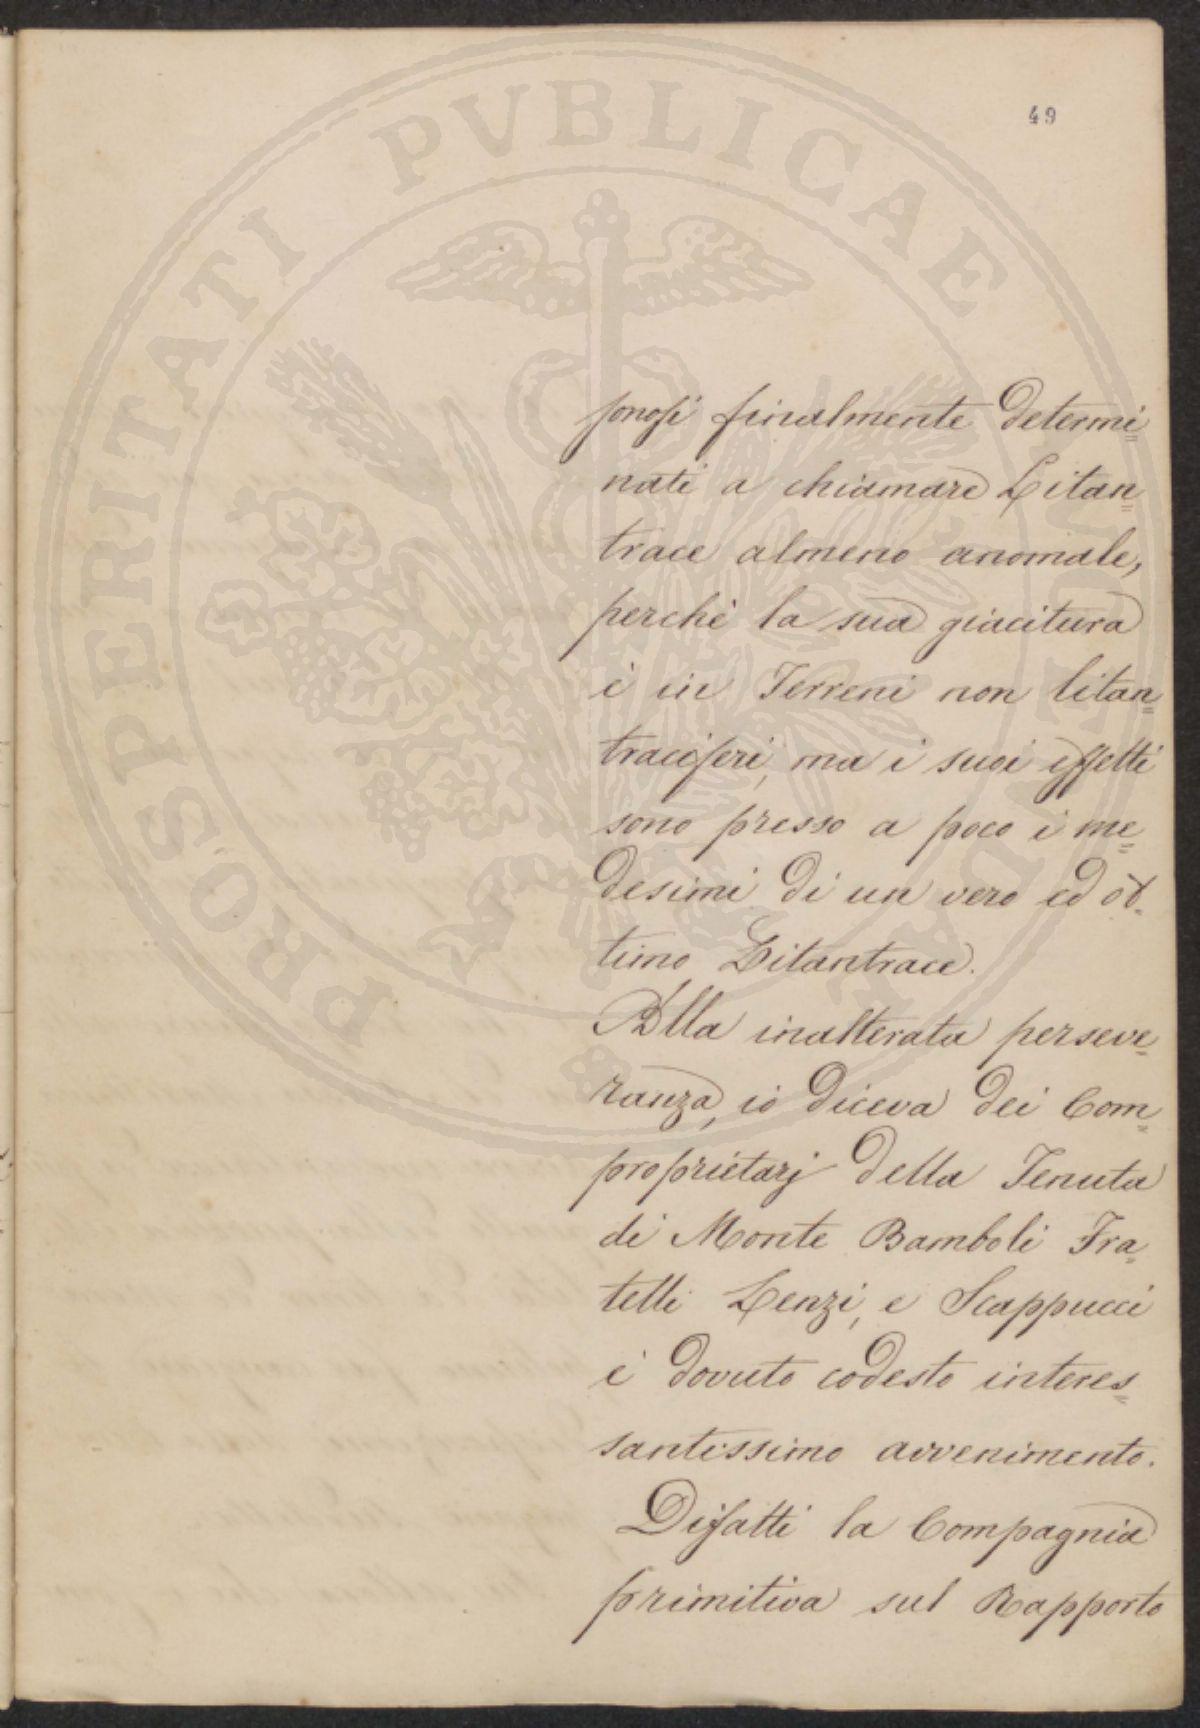 PROSPERITATI PVBLICAE AVGENDAE
49
sonosi finalmente determi=
nati a chiamare Litan=
trace almeno anomale,
perchè la sua giacitura
è in Terreni non litan=
traciferi, ma i suoi effetti
sono presso a poco i me=
desimi di un vero ed ot=
timo Litantrace.
Alla inalterata perseve=
ranza, io diceva dei Com=
proprietarj della Tenuta
di Monte Bamboli Fra=
telli Lenzi, e Scappucci
è dovuto codesto interes=
santissimo avvenimento.
Difatti la Compagnia
primitiva sul Rapporto